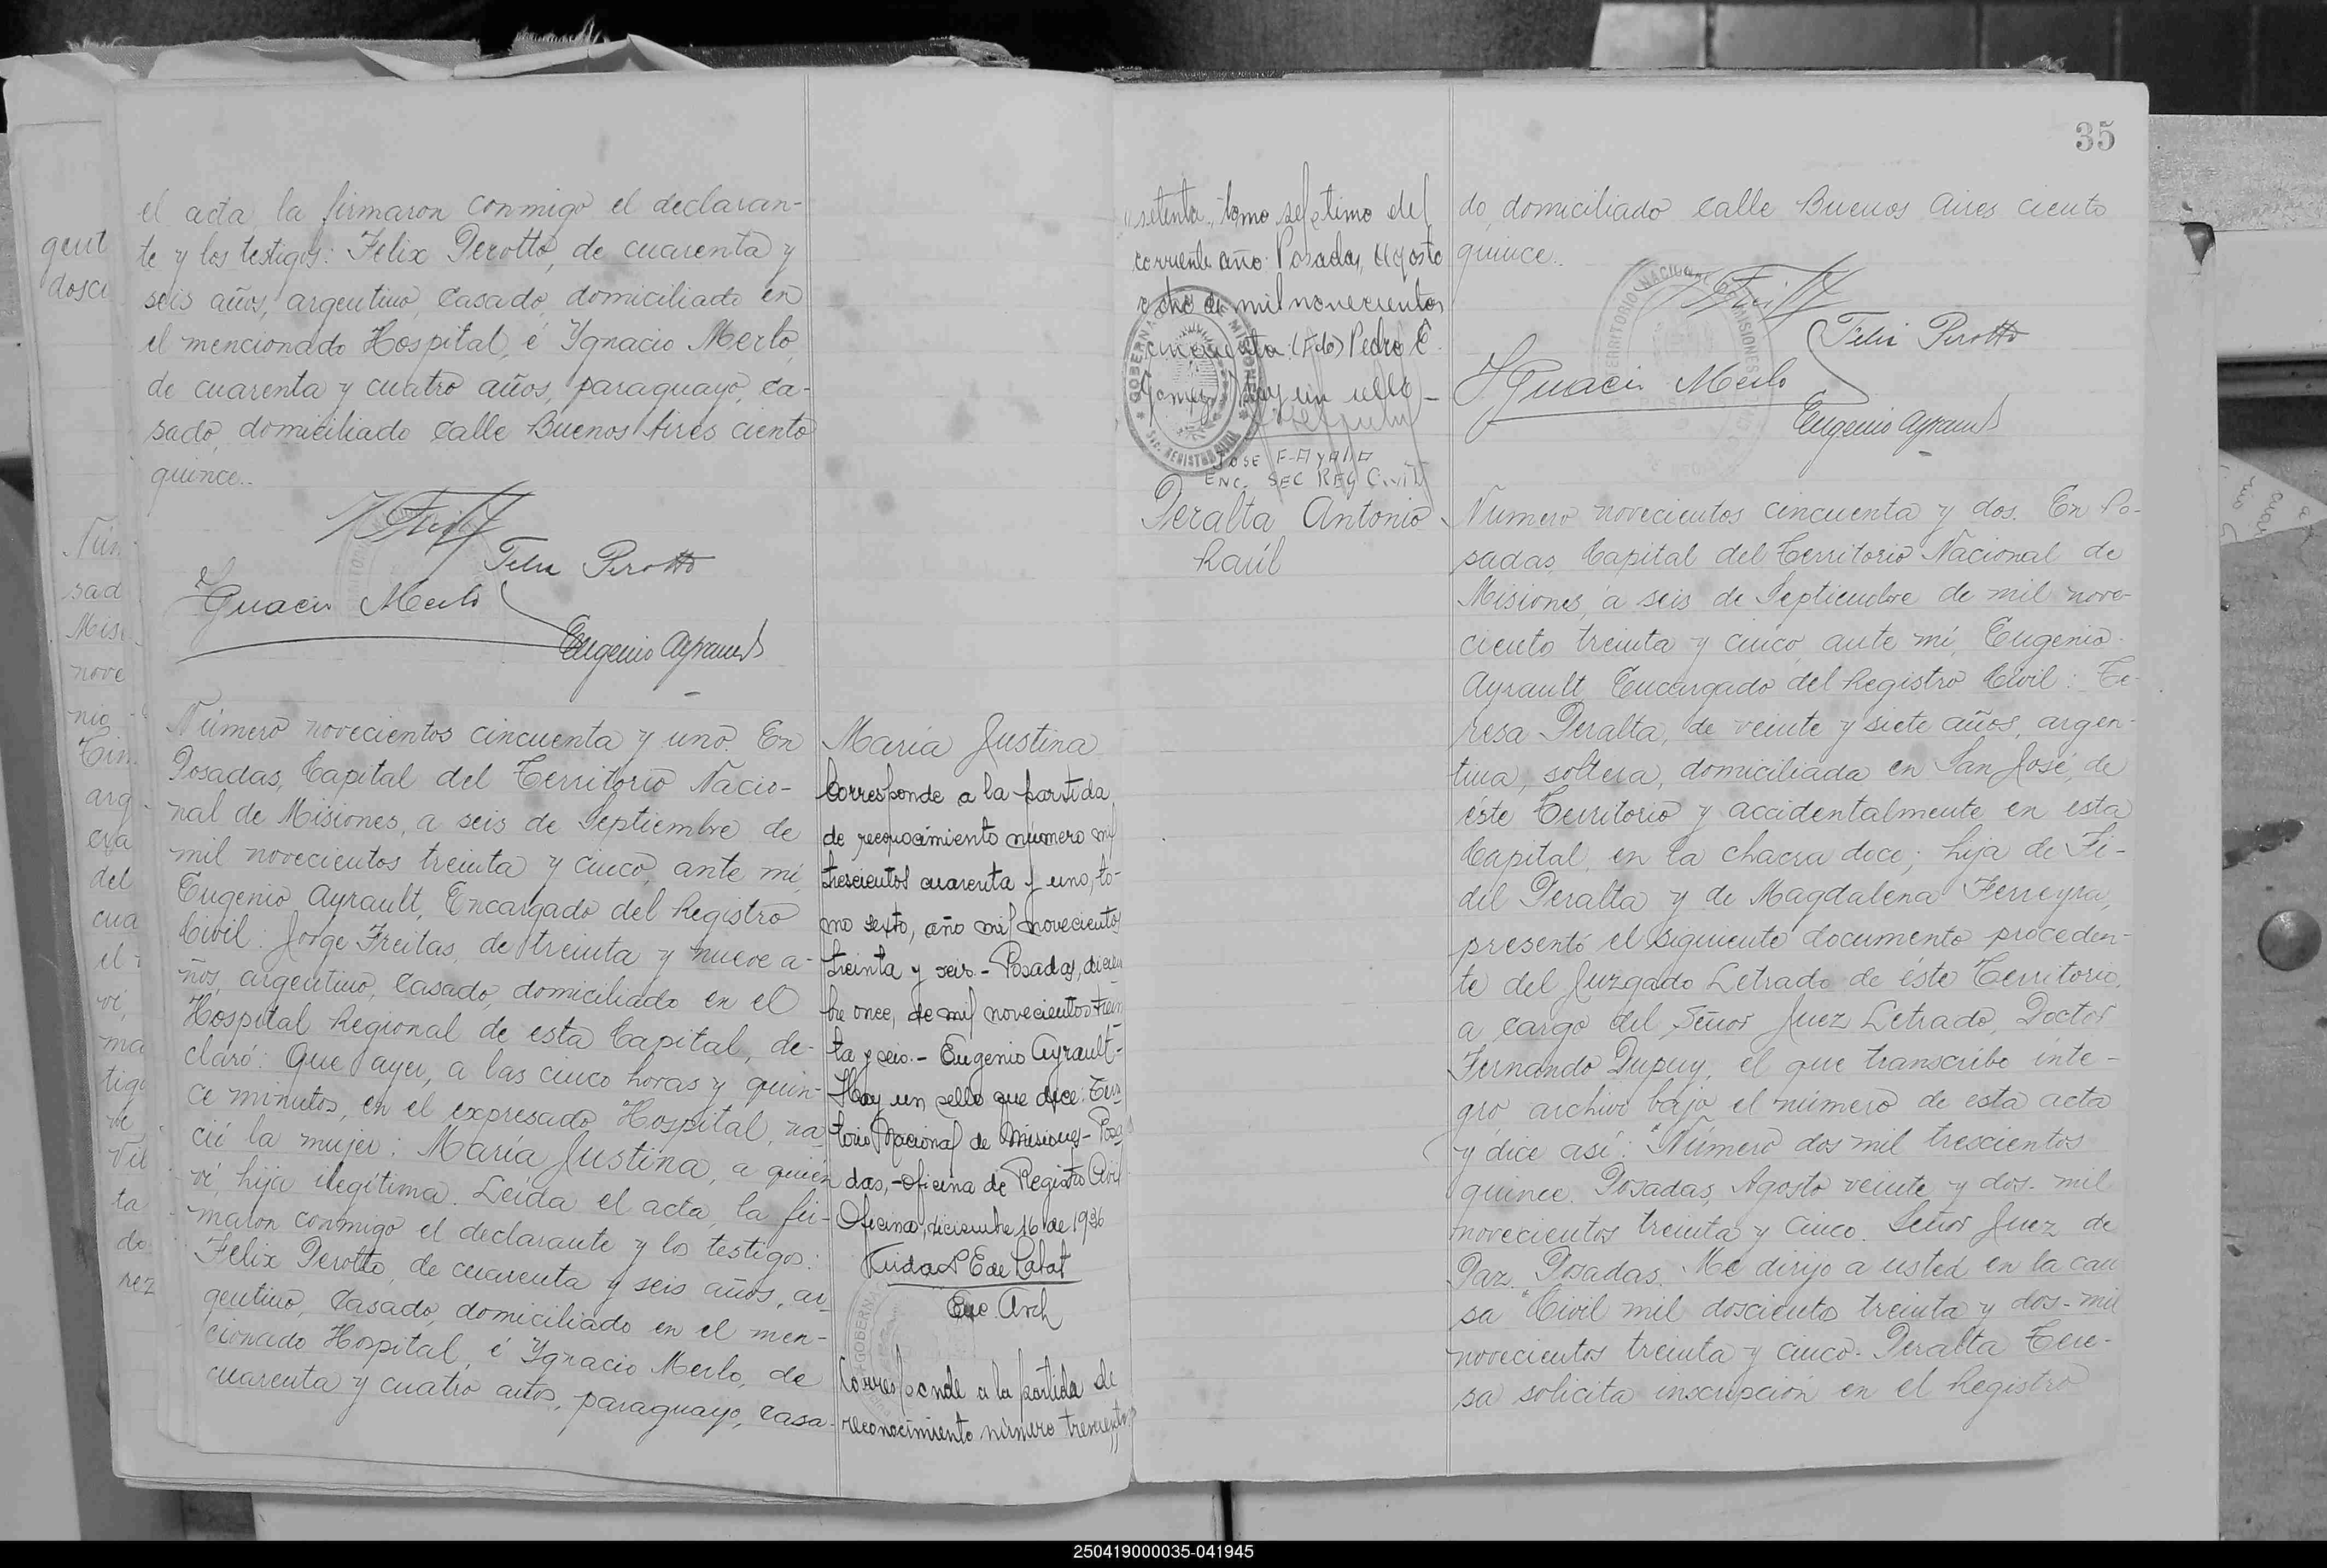 el acta, la firmaron conmigo el declaran-
te y los testigos: Felix Perotto, de cuarenta y
seis años, argentino, casado, domiciliado en
el mencionado Hospital, é Ygnacio Merlo,
de cuarenta y cuatro años, paraguayo, ca-
sado, domiciliado calle Buenos Aires ciento
quince.-
Felix Perotto
Ygnacio Merlo
Eugenio Ayrault
Número novecientos cincuenta y uno. En
Posadas, Capital del Territorio Nacio-
nal de Misiones, a seis de Septiembre de
mil novecientos treinta y cinco, ante mí,
Eugenio Ayrault, Encargado del Registro
Civil: Jorge Freitas, de treinta y nueve a-
ños, argentino, casado, domiciliado en el
Hospital Regional de esta Capital, de-
claró: Que ayer, a las cinco horas y quin-
ce minutos, en el expresado Hospital, na-
ció la mujer: María Justina, a quién
ví, hija ilegítima. Leída el acta, la fir-
maron conmigo el declarante y los testigos:
Felix Perotto, de cuarenta y seis años, ar-
gentino, casado, domiciliado en el men-
cionado Hospital, é Ygnacio Merlo, de
cuarenta y cuatro años, paraguayo, casa-
María Justina
Corresponde a la partida
de reconocimiento número mil
trescientos cuarenta y uno, to-
mo sexto, año mil novecientos
treinta y seis.- Posadas, diciem
bre once, de mil novecientos trein
ta y seis.- Eugenio Ayrault-
Hay un sello que dice: Terri
torio Nacional de Misiones- Posa
das,- Oficina de Registro Civil
Oficina, diciembre 16 de 1936
Enc. Arch
Corresponde a la partida de
reconocimiento número trescientos
setenta, tomo septimo del
corriente año. Posadas, Agosto
ocho de mil novecientos
cincuenta. (Fdo) Pedro E.
Gomez. Hay un sello-
JOSE F. AYALA
ENC. SEC REG CIVIL
Peralta Antonio
Raúl
35
do, domiciliado calle Buenos Aires ciento
quince.-
Felix Perotto
Ygnacio Merlo
Eugenio Ayrault
Número novecientos cincuenta y dos. En Po-
sadas, Capital del Territorio Nacional de
Misiones, á seis de Septiembre de mil nove-
ciento treinta y cinco, ante mí, Eugenio
Ayrault, Encargado del Registro Civil: Te-
resa Peralta, de veinte y siete años, argen-
tina, soltera, domiciliada en San José, de
éste Territorio y accidentalmente en esta
Capital, en la chacra doce; hija de Fi-
del Peralta y de Magdalena Ferreyra,
presentó el siguiente documento proceden-
te del Juzgado Letrado de éste Territorio,
a cargo del Señor Juez Letrado, Doctor
Fernando Dupuy, el que transcribo inte-
gro archivo bajo el número de esta acta
y dice así: "Número dos mil trescientos
quince. Posadas, Agosto veinte y dos- mil
novecientos treinta y cinco. Señor Juez de
Paz. Posadas. Me dirijo a usted en la cau
sa "Civil mil doscientos treinta y dos- mil
novecientos treinta y cinco- Peralta Tere-
sa solicita inscripción en el Registro
250419000035-041945